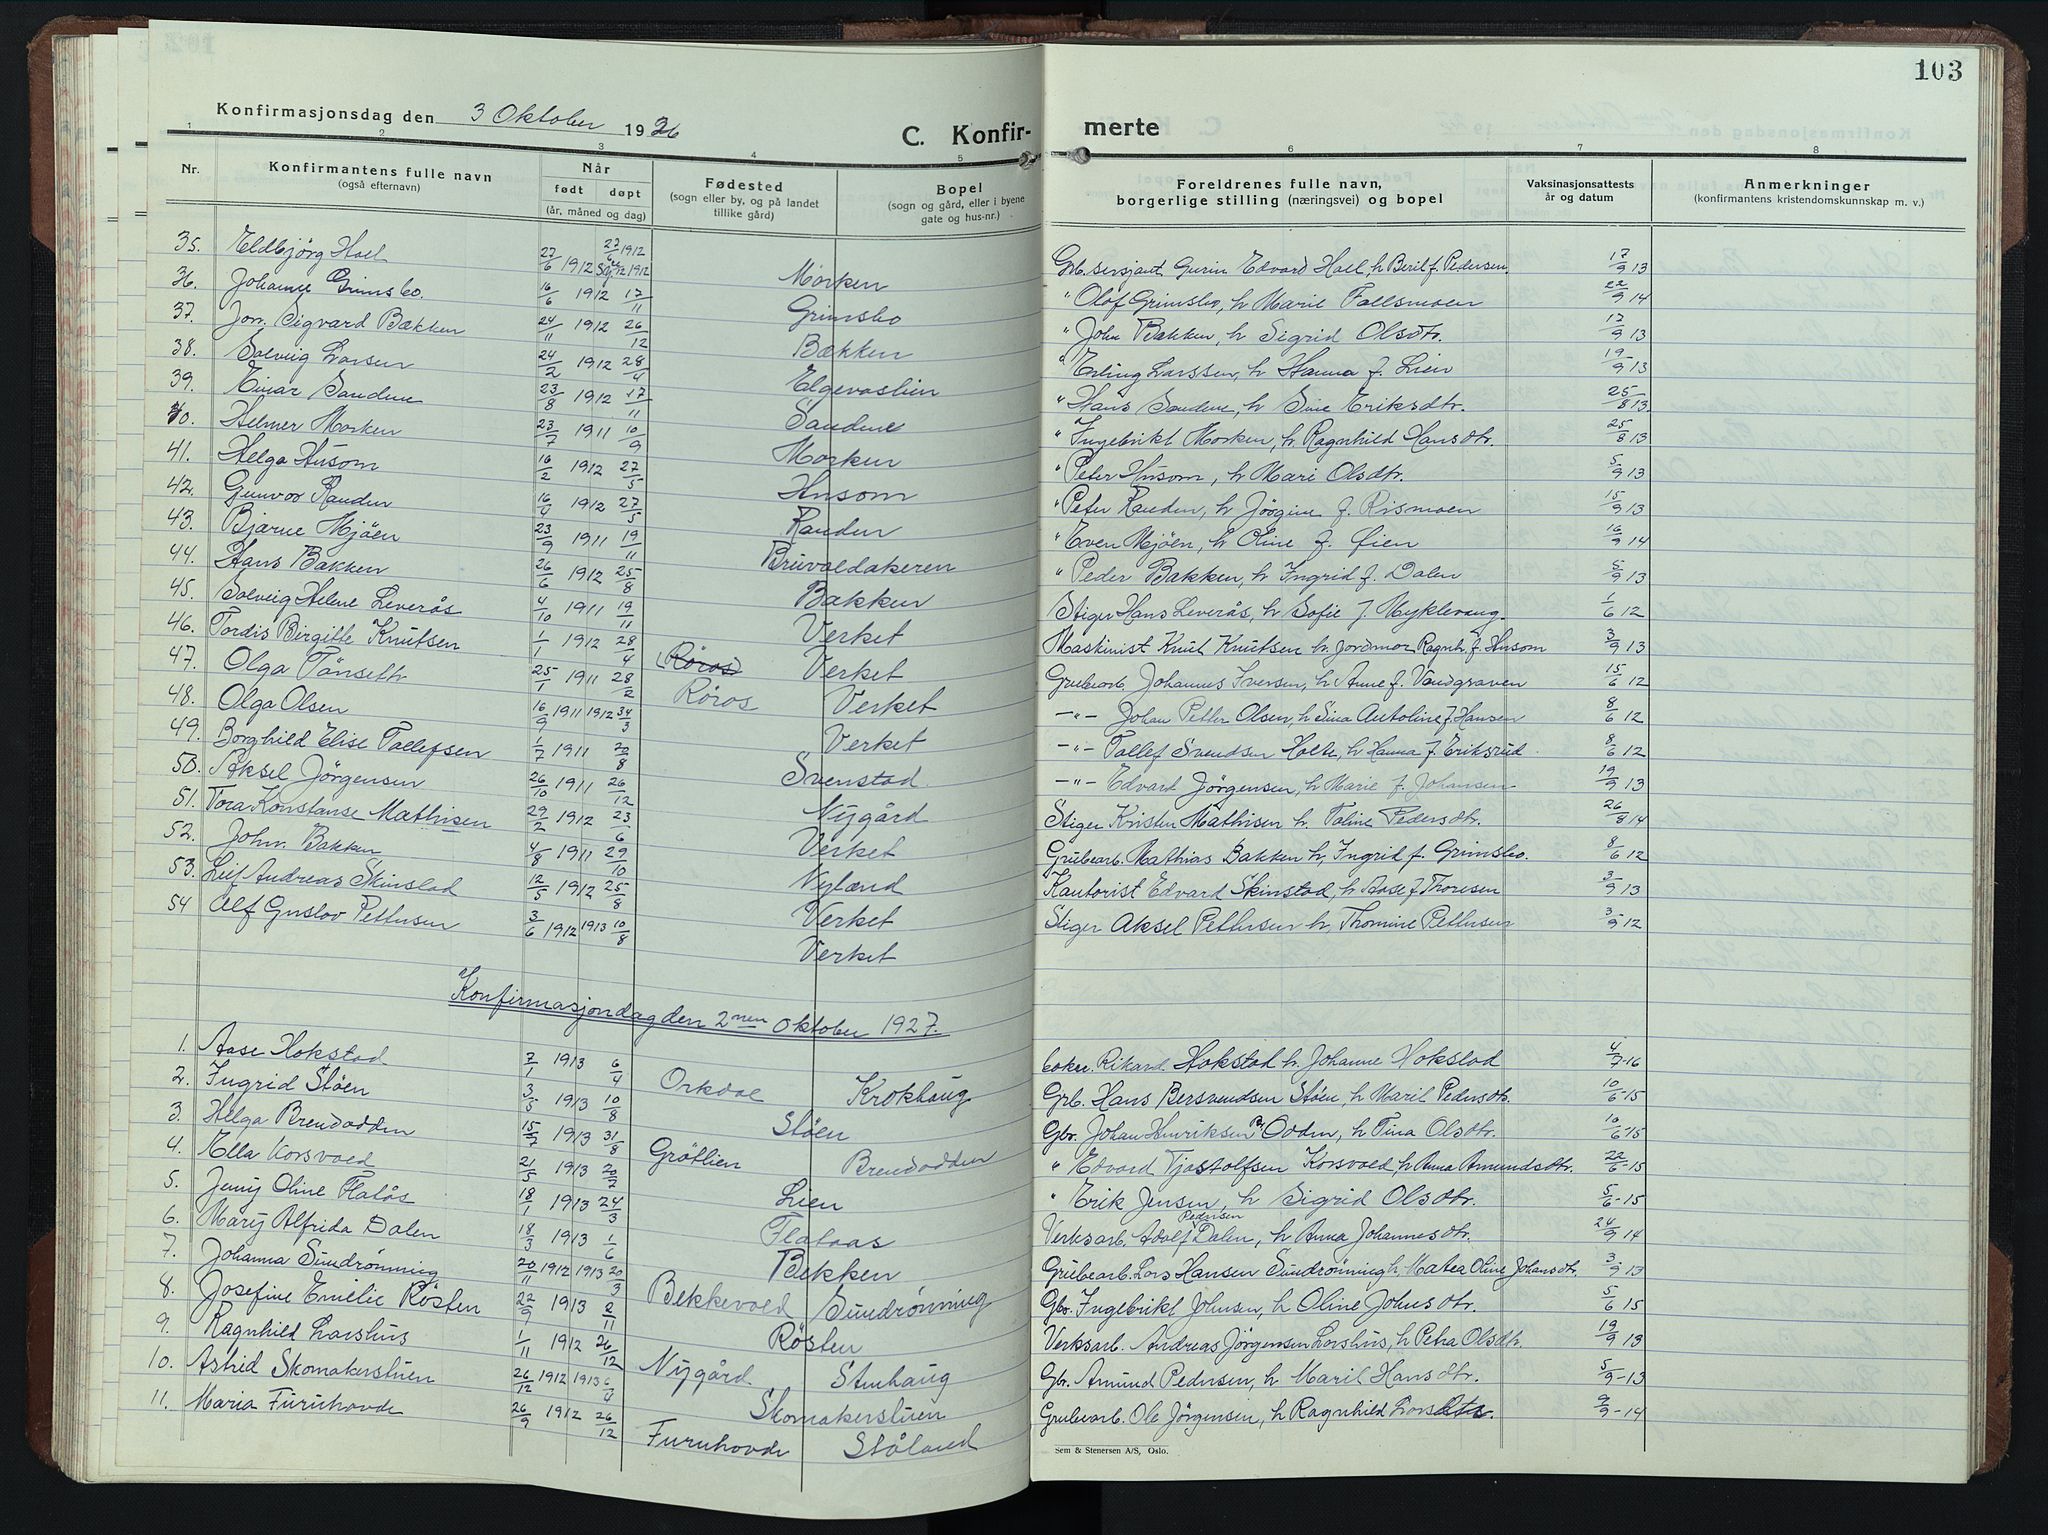 103
Konfirmasjonsdag den 3 Oktober 1926
C. Konfirmerte
1 2 3 4 5 6 7 8
Nr. Konfirmantens fulle navn (også efternavn) Når født døpt (år, måned og dag) Fødested (sogn eller by, og på landet tillike gård) Bopel (sogn og gård, eller i byene gate og hus-nr.) Foreldrenes fulle navn, borgerlige stilling (næringsvei) og bopel Vaksinasjonsattests år og datum Anmerkninger (konfirmantens kristendomskunnskap m. v.)
35. Eldbjörg Hoel 27/6 1912 27/6 1912 Morken Grb. sersjant Gurin Edvard Hoel, h Beril f. Pedersen 17/9 13
36. Johanne Grimsbo. 16/6 1912 17/11 Grimsbo " Olof Grimsbo, h Marie Follsmoen 22/9 14
37. Jon Sigvard Bækken 24/11 1912 26/12 Bækken " John Bækken, h Sigrid Olsdtr. 17/9 13
38. Solveig Larsen 24/2 1912 28/4 Elgevaslien " Erling Larssen, h Hanna f. Lien 19/9 13
39. Einar Sandene 23/8 1912 17/11 Sandene " Hans Sandene, h Sine Eriksdtr. 25/8 13
40. Helmer Morken 23/7 1911 10/9 Morken " Ingebrikt Morken, h. Ragnhild Hansdtr. 25/8 13
41. Helga Husom 16/2 1912 27/5 Husom " Peter Husom, h Mari Olsdtr. 5/9 13
42. Gunvor Randen 16/4 1912 27/5 Randen " Peter Randen, h Jörgine f. Rismoen 15/9 13
43. Bjarne Mjöen 23/9 1911 19/11 Bruvoldakeren " Even Mjöen, h Oline f. Øien 16/9 14
44. Hans Bakken 26/6 1912 25/8 Bakken " Peder Bakken, h Ingrid f. Dalen 5/9 13
45. Solveig Helene Leverås 4/10 1911 19/11 Verket Stiger Hans Leverås, h Sofie f. Myklevang. 1/6 12
46. Tordis Birgitte Knutsen 1/1 1912 28/4 (Röros) Verket Maskinist Knut Knutsen h. Jordmor Ragnh. f. Husom 3/9 13
47. Olga Tönseth 25/1 1911 28/2 Röros Verket Grubearb. Johannes Iversen, h Anne f. Vandgraven 15/6 12
48. Olga Olsen 16/9 1911 1912 24/3 Verket -"- Johan Petter Olsen, h Sina Antoline f. Hansen 8/6 12
49. Borghild Elise Tallefsen 1/7 1911 20/8 Svenstad. -"- Tallef Svendsen Holte, h Hanna f. Eriksrud. 8/6 12
50. Aksel Jörgensen 26/10 1911 26/12 Nygård -"- Edvard Jörgensen, h Marie f. Johansen 19/9 13
51. Tora Konstanse Mathisen 29/2 1912 23/6 Verket Stiger Kristen Mathisen h. Taline Pedersdtr. 26/8 14
52. John Bakken 4/8 1911 29/10 Nyland Grubearb. Mathias Bakken h, Ingrid f. Grimsbo. 8/6 12
53. Leif Andreas Skinstad 12/5 1912 25/8 Verket Kontorist Edvard Skinstad, h Aase f Thoresen 3/9 13
54 Alf Gustav Pettersen 3/6 1912 1913 10/8 Verket Stiger Aksel Pettersen h, Thomine Pettersen 3/9 12
Konfirmasjondag den 2nen Oktober 1927.
1. Aase Hokstad 7/1 1913 6/4 Orkdal Krokhaug Rikard Hokstad h. Johanne Hokstad 4/7-16
2. Ingrid Stöen 3/5 1913 10/8 Stöen Grb. Hans Bersvendsen Stöen, h Marit Pedersdtr. 10/6-15
3. Helga Brendodden 15/7 1913 31/8 Grötlien Brendodden Gbr. Johan Henriksen Odden, h Tina Olsdtr. 10/6-15
4. Ella Korsvold 21/5 1913 20/7 Lien " Edvard Tjostolfsen Korsvold, h Anna Amundsdtr. 22/6-15
5. Jenny Oline Flatås 18/1 1913 24/3 Flataas " Erik Jensen, h Sigrid Olsdtr. 5/6-15
6. Mary Alfrida Dalen 18/3 1913 1/6 Bekken Verksarb. Adolf Pedersen Dalen, h Anna Johannesdtr. 24/9 14
7. Johanna Sundrønning 20/11 1912 1913 20/3 Bekkevold Sundrønning Grubearb. Lars Hansen Sundrønning h Matea Oline Johansdtr. 3/9 13
8. Josefine Emelie Rösten 22/9 1913 2/11 Rösten Gbr. Ingebrikt Johnsen, h Oline Johnsdtr. 5/6 15
9. Ragnhild Larshus 1/11 1912 26/12 Nygård. Stenhaug Verksarb. Andreas Jörgensen Larshus, h Petra Olsdtr. 19/9 13
10. Astrid Skomakerstuen 26/12 1912 1913 6/4 Skomakerstuen Gbr. Amund Pedersen, h Marit Hansdtr. 5/9-13
11. Maria Furuhovde 26/9 1912 26/12 Furuhovde Stöland Grubearb. Ole Jörgensen, h Ragnhild Larsdtr. 9/9-14
Sem & Stenersen A/S, Oslo.